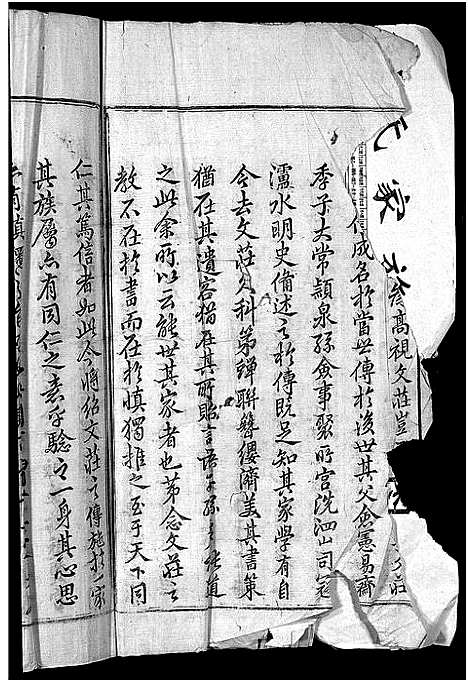 氏家
高視文莊豈
成名於當世傳於後世其父僉憲易齋
季子太常頴泉孫僉事聚所宮洗泗山司寇
瀘水明史備述之於傳既足知其家學有自
今去文莊之科第蟬聯簪纓濟美其書策
猶在其遺容猶在其所貽言語子孫之
之此余所以云能世其家者也第念文莊之
教不在於書而在於慎獨推之至于天下同
仁其篤信者如此今將紹文莊之傳施於一家
其族屬亦有同仁之素乎驗之一身其心思